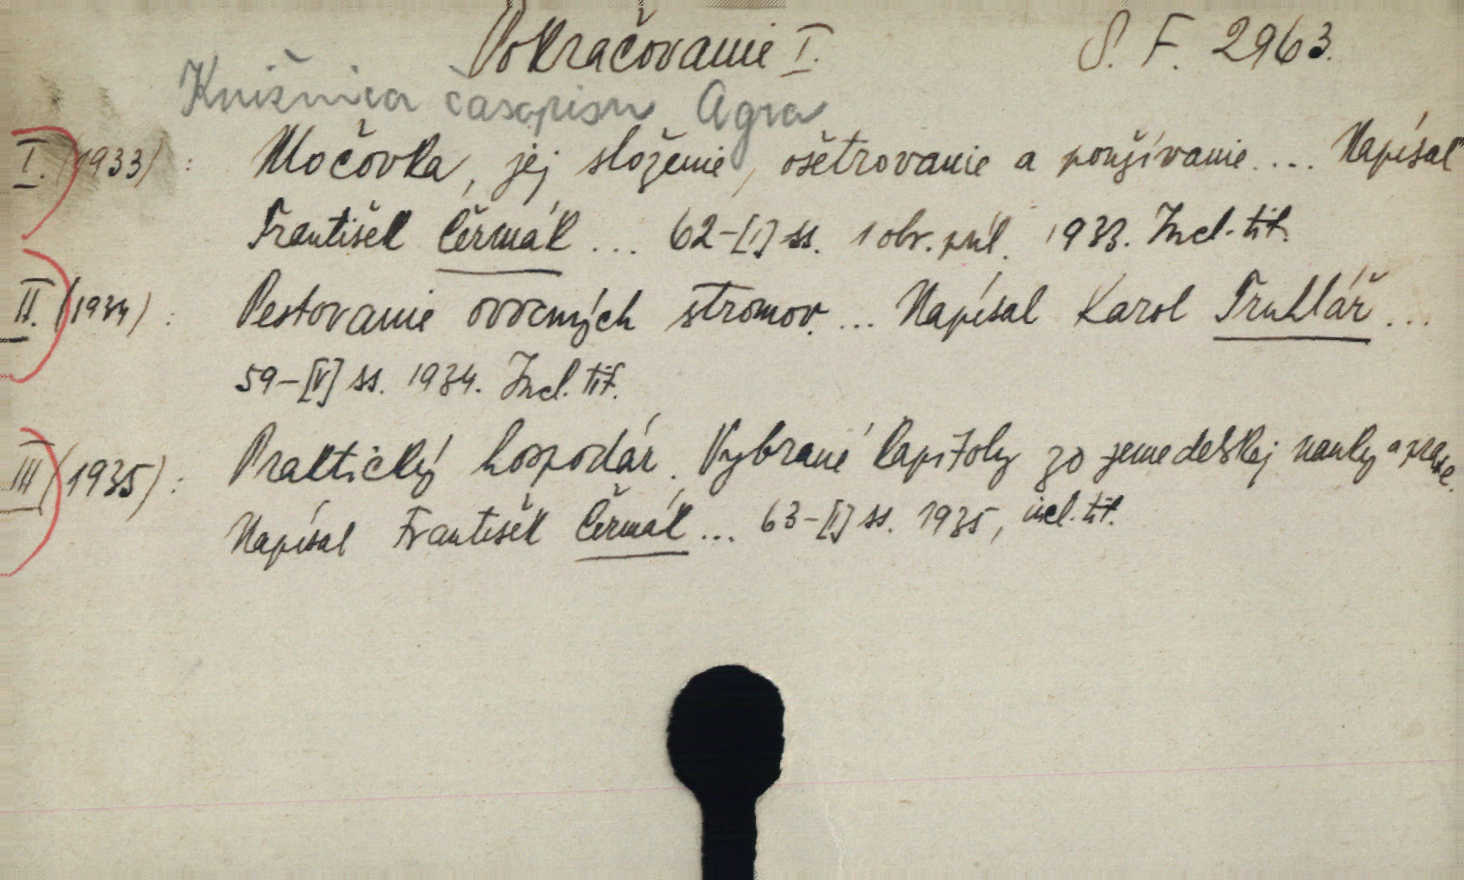 Pokračovanie I. S. F. 2963.
Knižnica časopisu Agra
I. (1933): Močovka, jej složenie, ošetrovanie a používanie.... Napísal
František Čermák ... 62-[I] ss. 1 obr. príl. 1933. Incl. tit.
II. (1934): Pestovanie ovocných stromov. ... Napísal Karol Truhlář ...
59-[V] ss. 1934. Incl. tit.
III (1935): Praktický hospodár. Vybrané kapitoly zo zemedelskej nauky a praxe.
Napísal František Čermák ... 63-[I] ss. 1935, incl. tit.